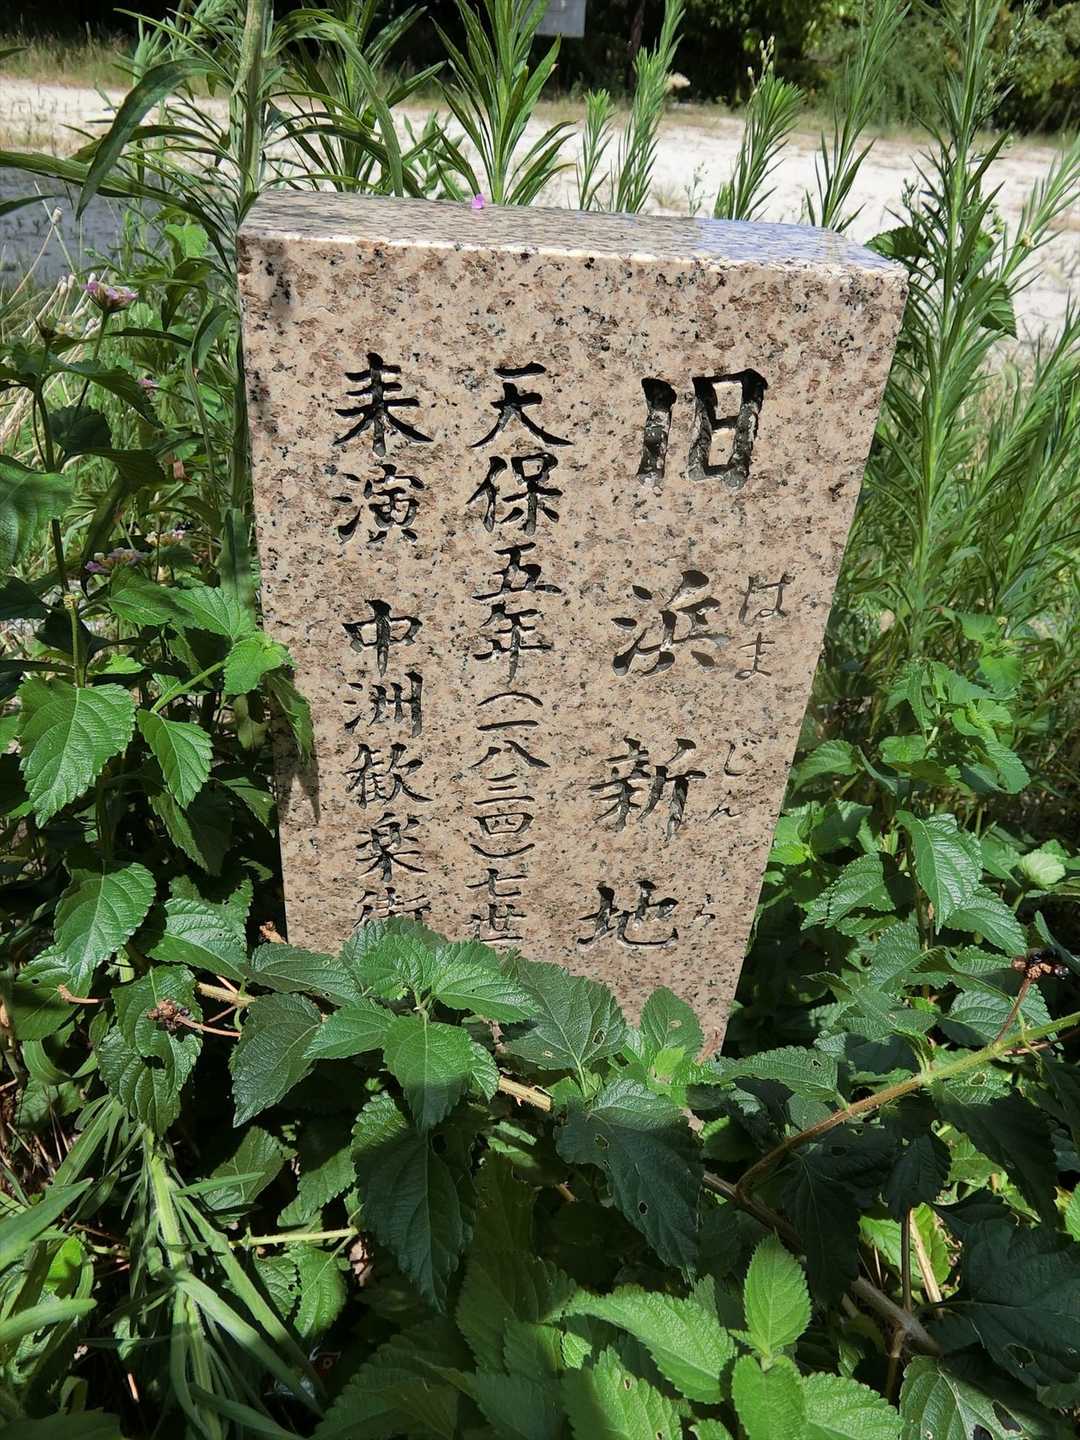 旧浜新地
はま しん ち
天保五年(一八三四)七世
来演 中洲歓楽街